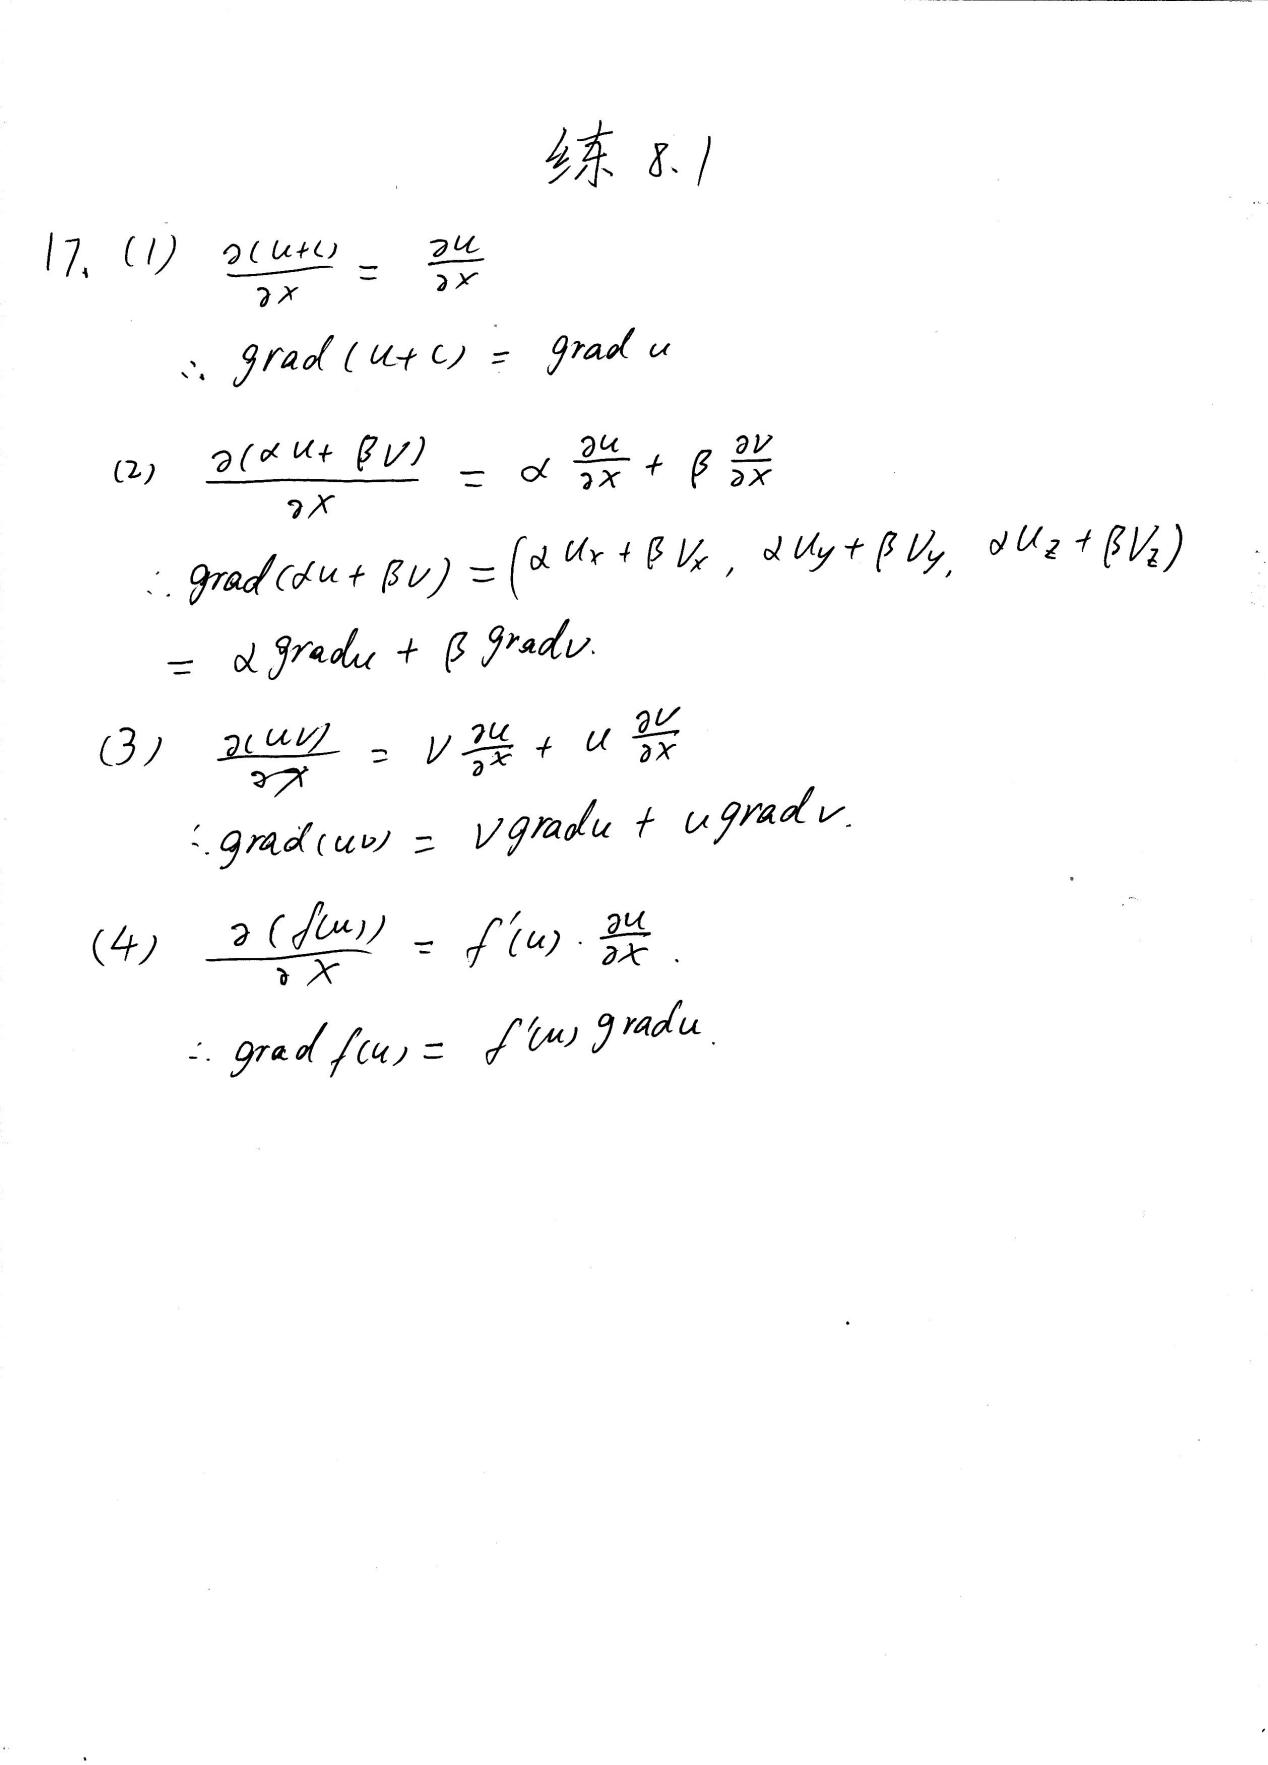 练 8.1
17. (1) ∂(u+c)/∂x = ∂u/∂x
∴ grad (u+c) = grad u
(2) ∂(αu+βv)/∂x = α ∂u/∂x + β ∂v/∂x
∴ grad(αu+βv) = (αux+βvx, αuy+βvy, αuz+βvz)
= α gradu + β gradv.
(3) ∂(uv)/∂x = v ∂u/∂x + u ∂v/∂x
∴ grad(uv) = v gradu + u gradv.
(4) ∂(f(u))/∂x = f'(u) · ∂u/∂x.
∴ grad f(u) = f'(u) gradu.